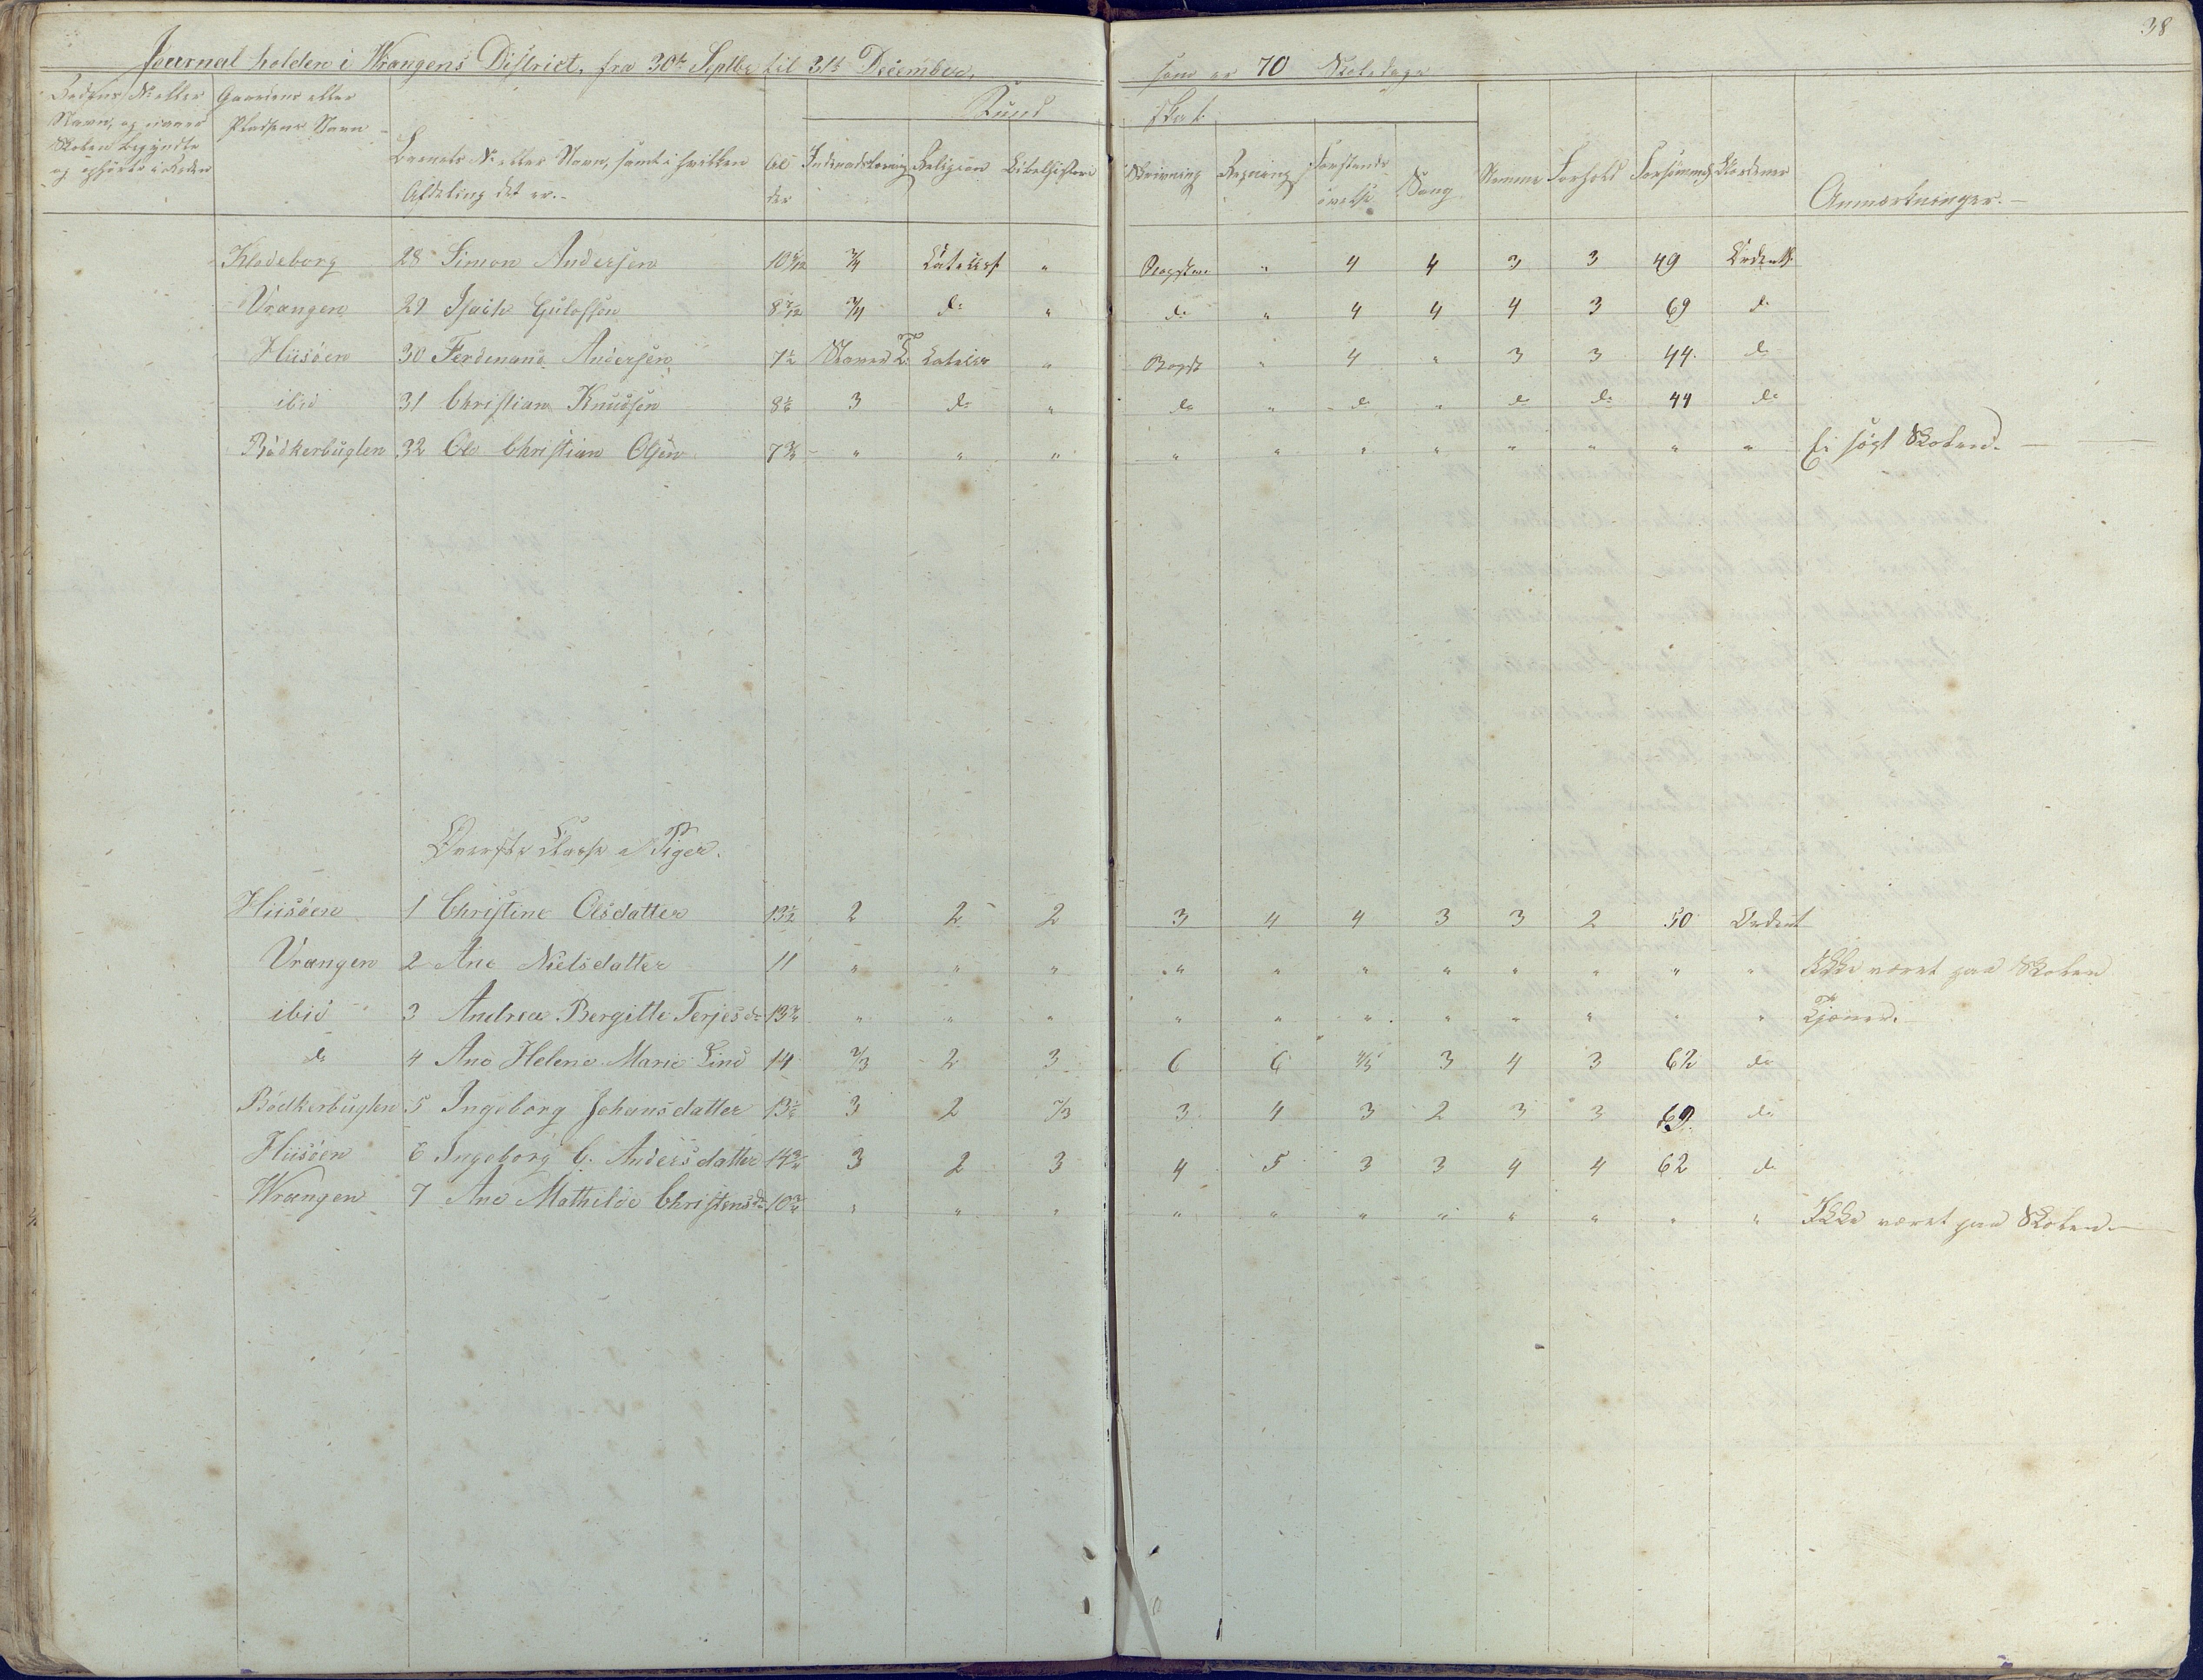 38
Journal holden i Wrangens District, fra 30te Septbr til 31te December, som er 70 Skoledage
Rodens No eller Navn, og naar Skolen begyndte og ophørte i Roden
Gaardens eller Pladsens Navn
Barnets No eller Navn, samt i hvilken Afdeling det er.-
Alder
Kundskab
Indenadslæsning Religion Bibelhistorie Skrivning Regning Forstandsøvelse Sang
Nemme Forhold Forsømmelse Anmærkninger.-
Klodeborg 28 Simon Andersen 10 3/4 Catechs " " 4 4 3 3 49 Ordentl.
Vrangen 29 Isach Gulofsen 8 3/4 do " do " 4 4 4 3 69 do
Hiisöen 30 Ferdinand Andersen 7½ Staver Catech " Bogst " 4 " 3 3 44 do
ibid 31 Christian Knudsen 8 3 do " do " do " do do 44 do
Bödkerbuglen 32 Ole Christian Olsen 7¾ " " " " " " " " " " " Ei søgt Skolen.
Øverste Classe Piger.
Hiisöen 1 Christine Olsdatter 13½ 2 2 2 3 4 4 3 3 2 50 Ordent
Vrangen 2 Ane Nielsdatter 11 " " " " " " " " " " " Ikke været paa Skolen
ibid 3 Andrea Bergitte Terjesdr 13¾ " " " " " " " " " " " Tjener.
do 4 Ane Helene Marie Lind 14 2/3 2 3 6 6 4/5 3 4 3 62 do
Bödkerbuglen 5 Ingeborg Johansdatter 13½ 3 2 2/3 3 4 3 2 3 3 69 do
Hiisöen 6 Ingeborg C. Andersdatter 14¾ 3 2 3 4 5 3 3 4 4 62 do
Wrangen 7 Ane Mathilde Christensdr 10¾ " " " " " " " " " " " Ikke været paa Skolen.